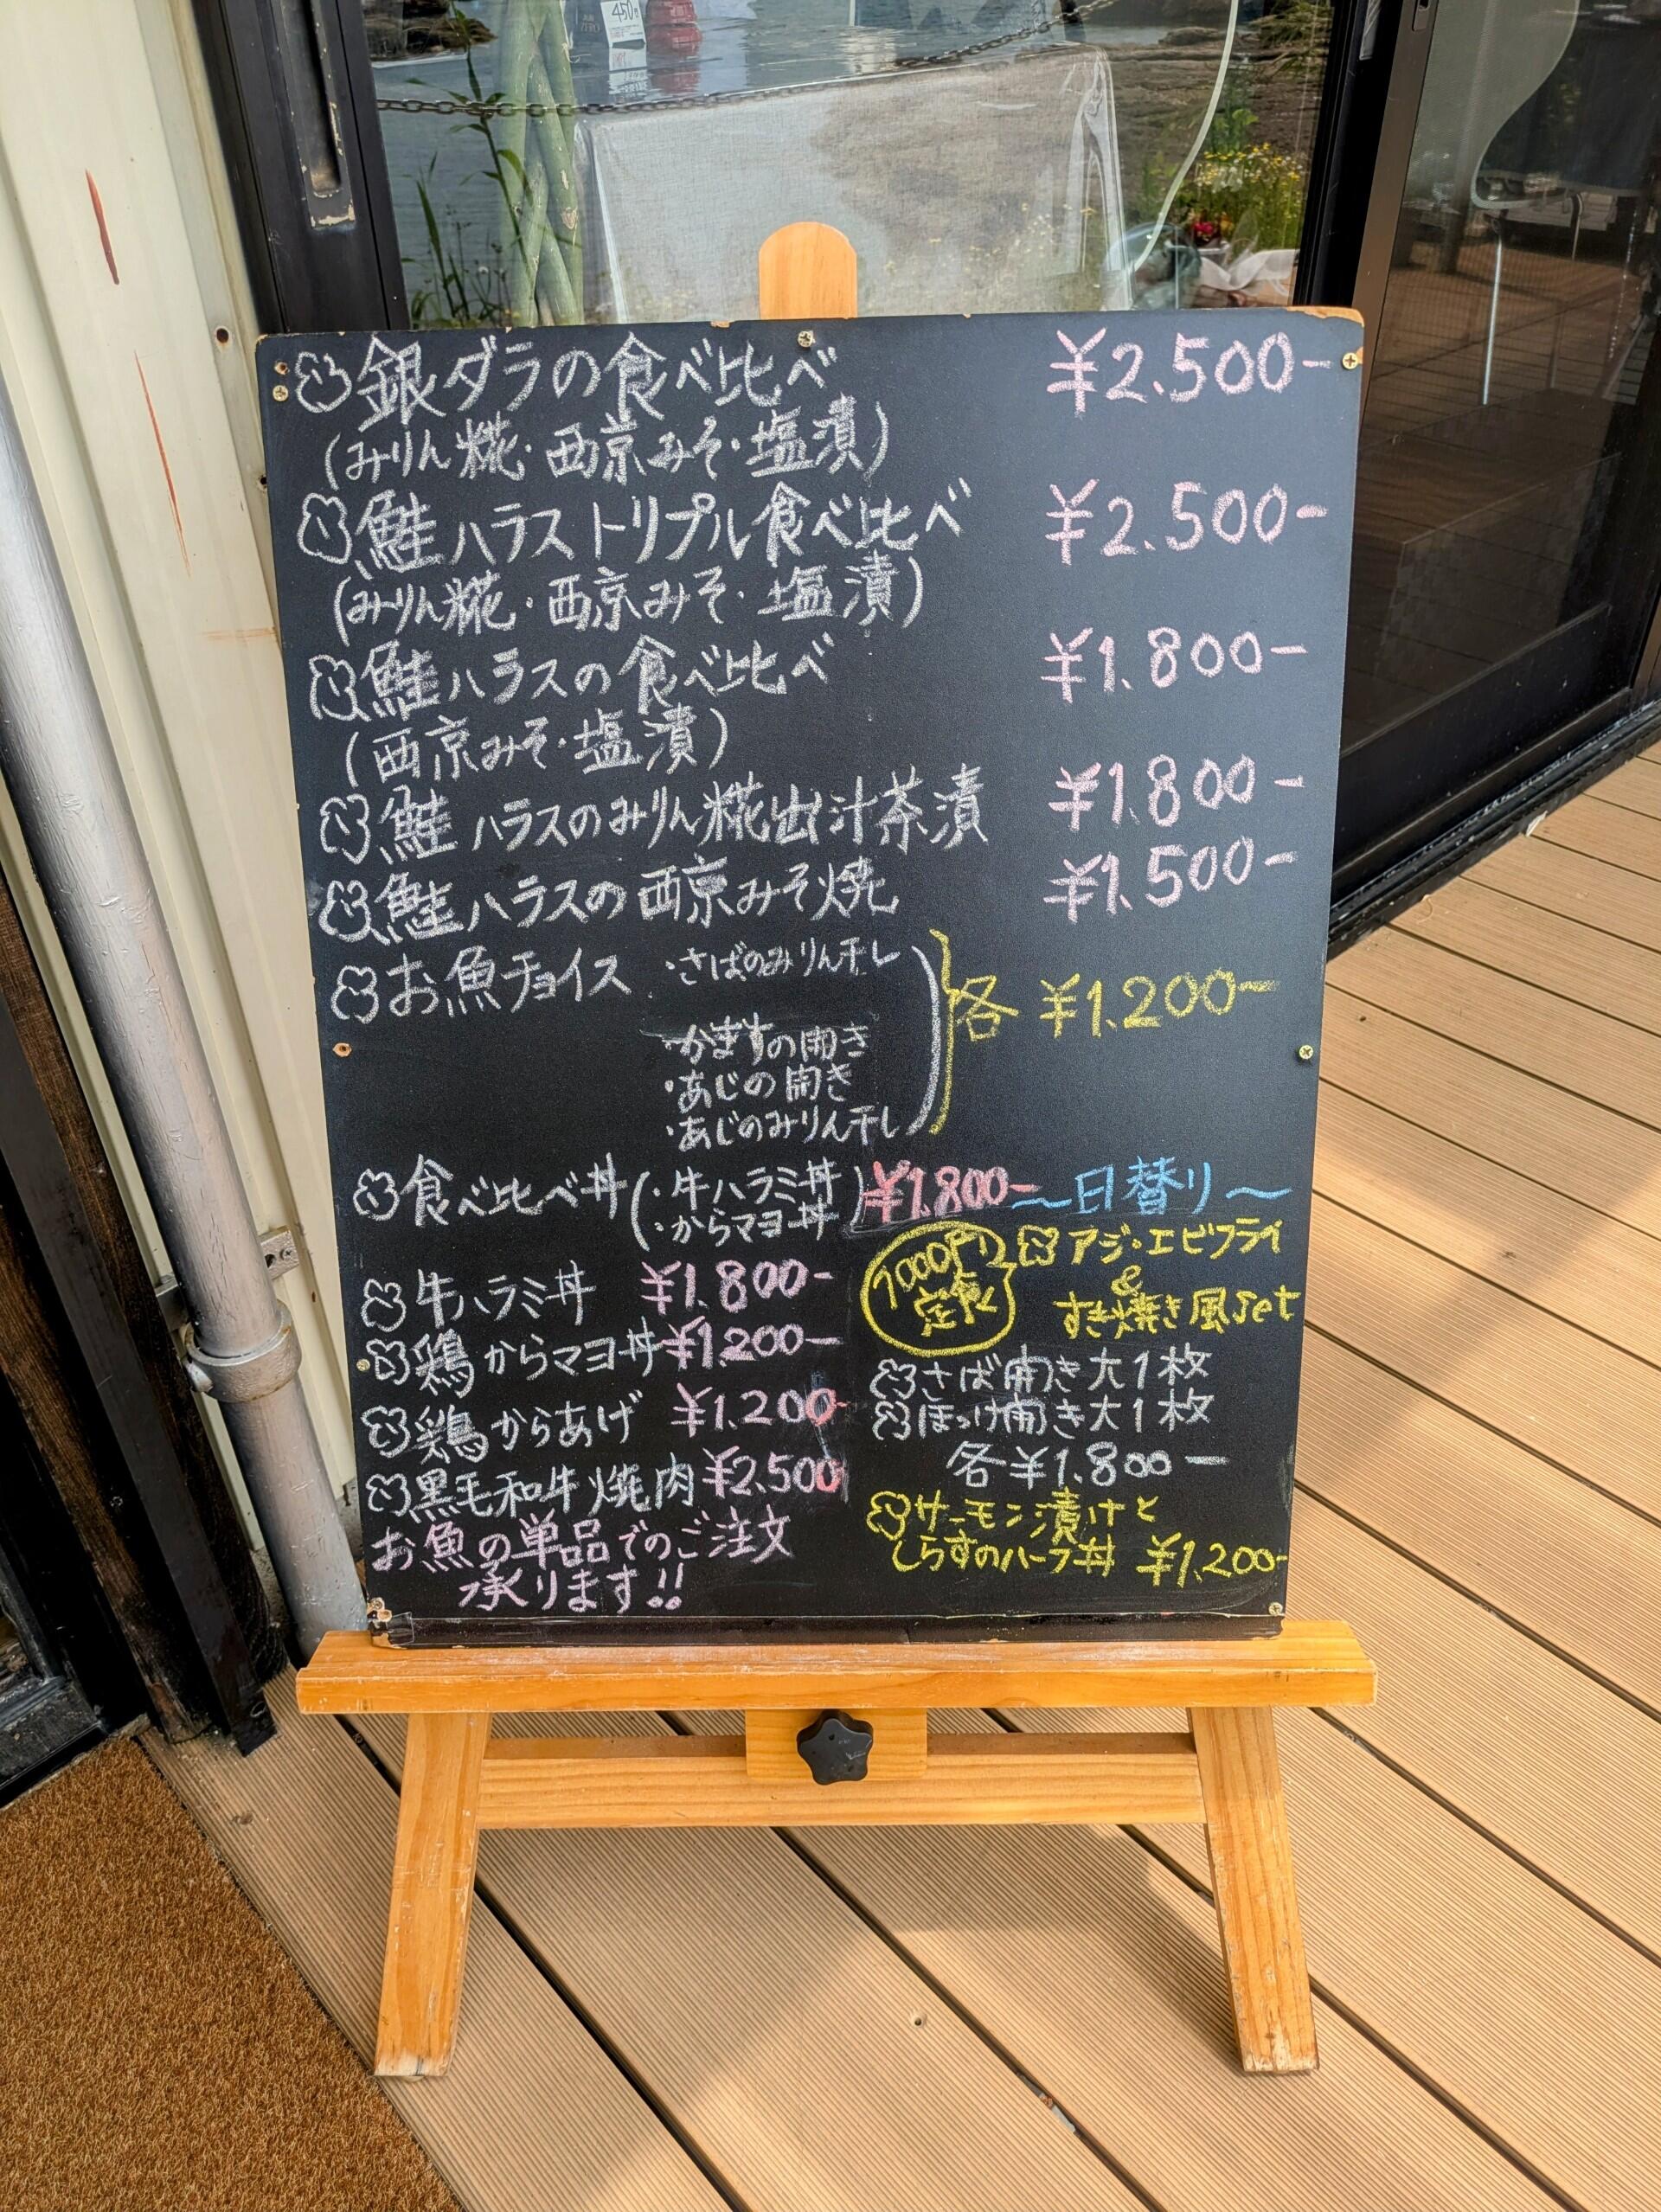 銀ダラの食べ比べ ¥2.500-
(みりん糀・西京みそ・塩漬)
鮭ハラストリプル食べ比べ ¥2.500-
(みりん糀・西京みそ・塩漬)
鮭ハラスの食べ比べ ¥1.800-
(西京みそ・塩漬)
鮭ハラスのみりん糀出汁茶漬 ¥1.800-
鮭ハラスの西京みそ焼 ¥1.500-
お魚チョイス ・さばのみりん干し
・かますの開き
・あじの開き
・あじのみりん干し
各 ¥1.200-
食べ比べ丼(・牛ハラミ丼
・からマヨ丼) ¥1.800-
牛ハラミ丼 ¥1.800-
鶏からマヨ丼 ¥1.200-
鶏からあげ ¥1.200-
黒毛和牛焼肉 ¥2.500
お魚の単品でのご注文
承ります!!
〜日替り〜
1000円
定食
アジ・エビフライ
&
すき焼き風set
さば開き大1枚
ほっけ開き大1枚
各¥1.800-
サーモン漬けと
しらすのハーフ丼 ¥1.200-
450